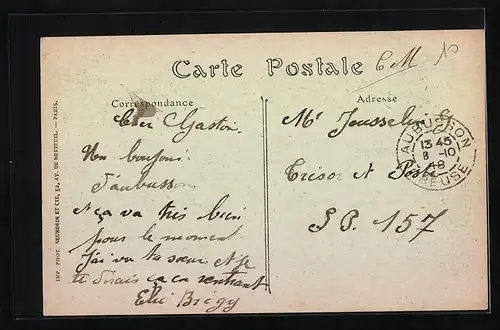 C M 10
Carte Postale
Correspondance
Adresse
Cher Gaston.
Un bonjour
d'aubusson
A ça va très bien
pour le moment
J'ai vu ta sœur et je
te dirais ça en rentrant
Elie Brégy
Mr Jousselin G
Trésor et Poste
S P. 157
AUBUSSON
13 45
8 -10
18
CREUSE
IMP. PHOT. NEURDEIN ET CIE, 52, AV. DE BRETEUIL. — PARIS.